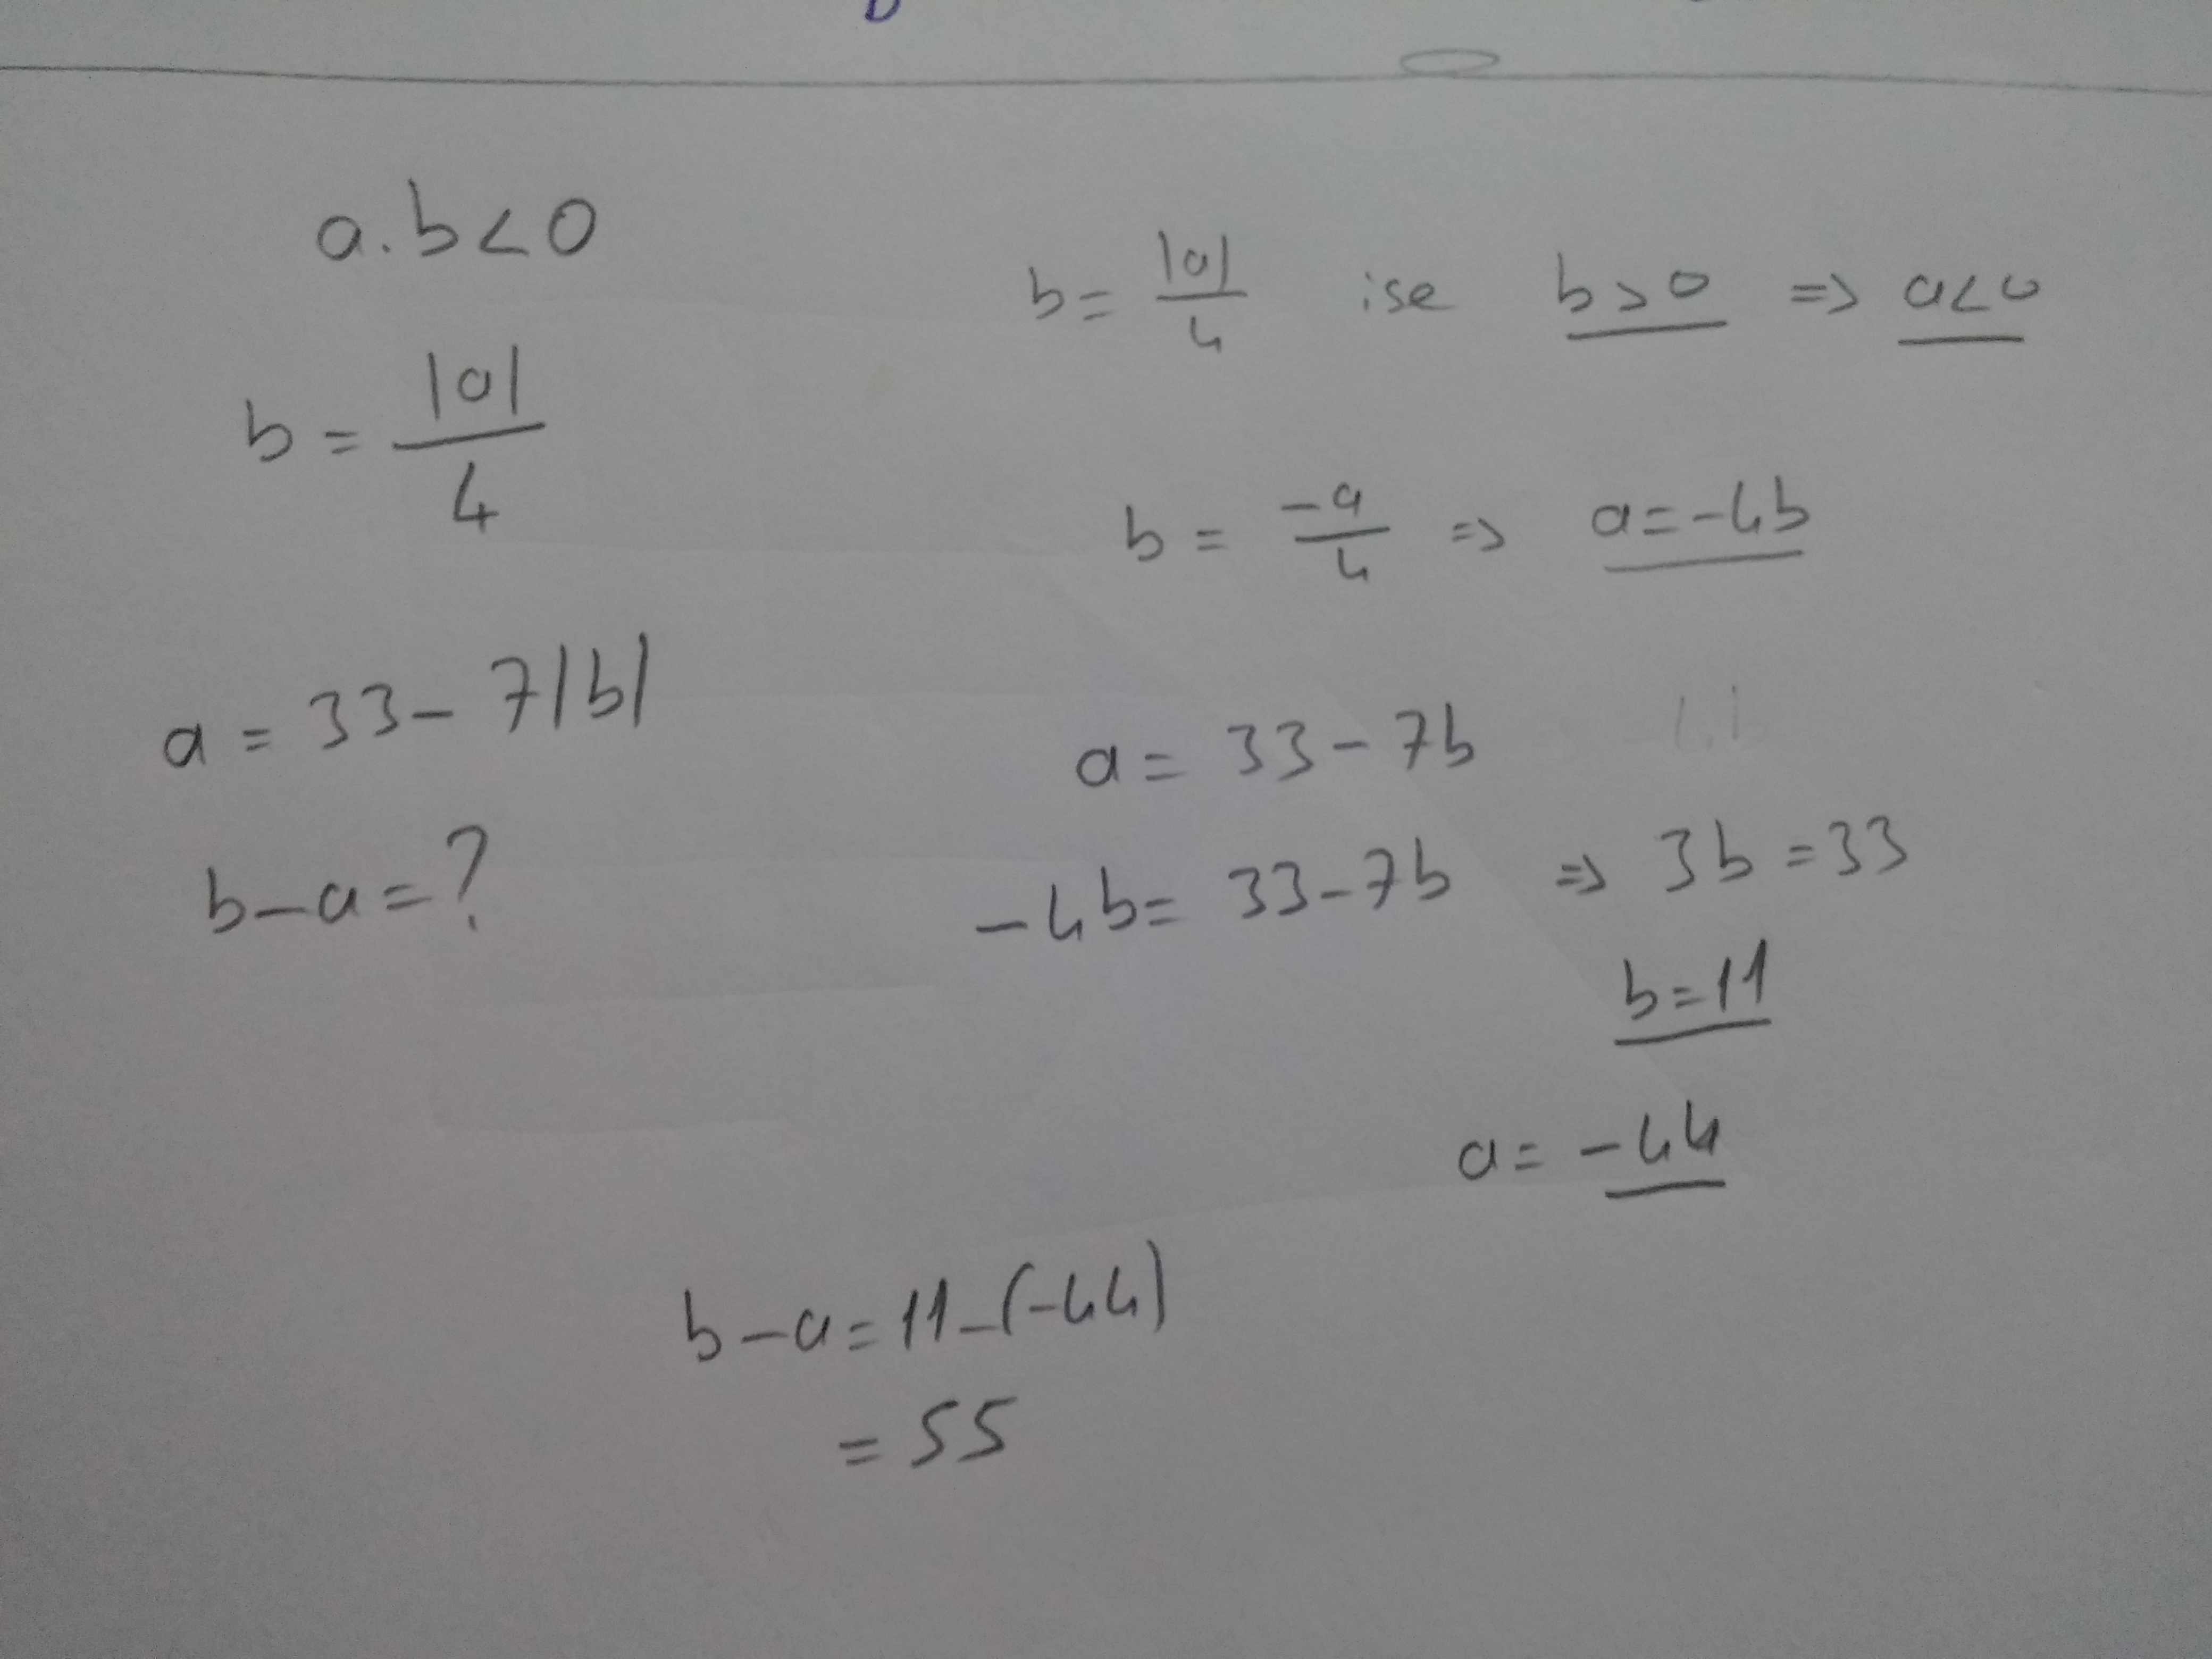 a.b<0
b = |a|/4
a = 33 - 7|b|
b-a = ?
b = |a|/4 ise b>0 => a<0
b = -a/4 => a=-4b
a = 33 - 7b
-4b = 33-7b => 3b = 33
b=11
a = -44
b-a = 11-(-44)
= 55